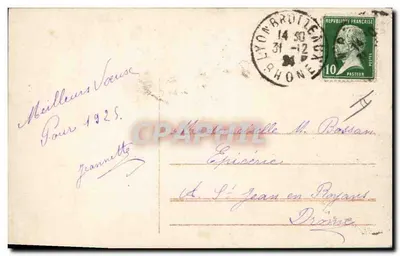 LYON-BROTTEAUX
14 30
31 -12
24
RHONE
REPUBLIQUE FRANÇAISE
10
POSTES
PASTEUR
Meilleurs Vœux
Pour 1925
Jeannette
Mademoiselle M. Bossan
Epicerie
A St Jean en Royans
Drôme
CPAPHIL